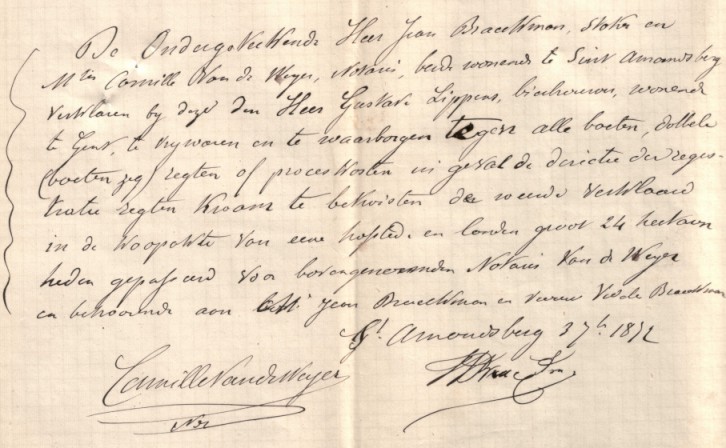 De Ondergeteekende Heer Jean Braeckman, stoker en
Mter Camille Van de Weyer, Notaris, beide wonende te Sint Amandsberg
verklaren by deze den Heer Gustave Lippens, wonende
te Gent, te vrywaren en te waarborgen tegen alle boeten, dobbele
(boeten zeg) regten of proceskosten in geval de directie der reges-
tratie regten kwam te betwisten de weerde verklaard
in de koopakte van eene hofstede en landen groot 24 hectaren
heden gepasseerd voor bovengenoemden Notaris Van de Weyer
en behoorende aan Jean Braeckman en Braeckman
St. Amandsberg 3 7b 1872
Camille Van de Weyer
Not